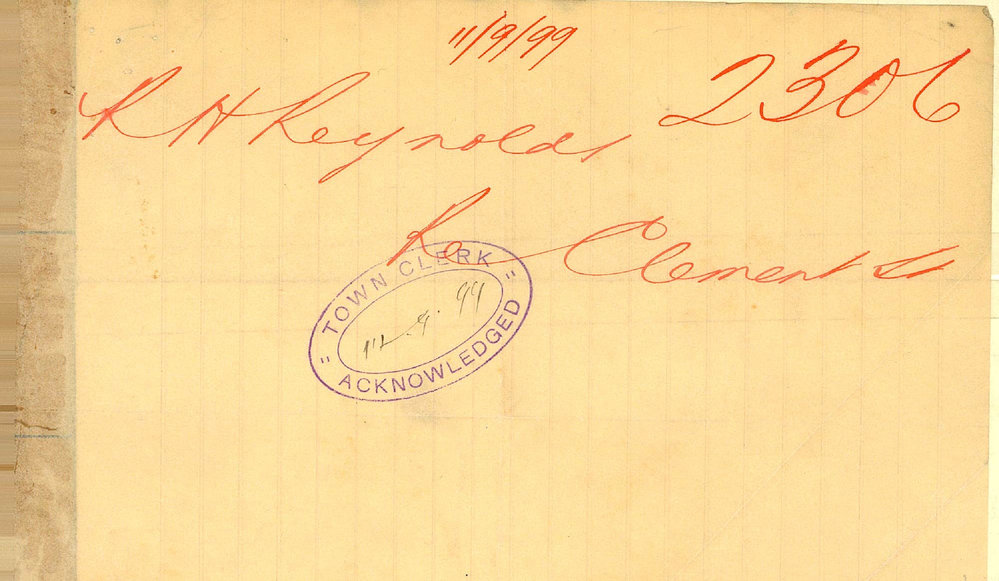 11/9/99
2306
R H Reynolds
Re Clement St
TOWN CLERK
11-9.99
" ACKNOWLEDGED "